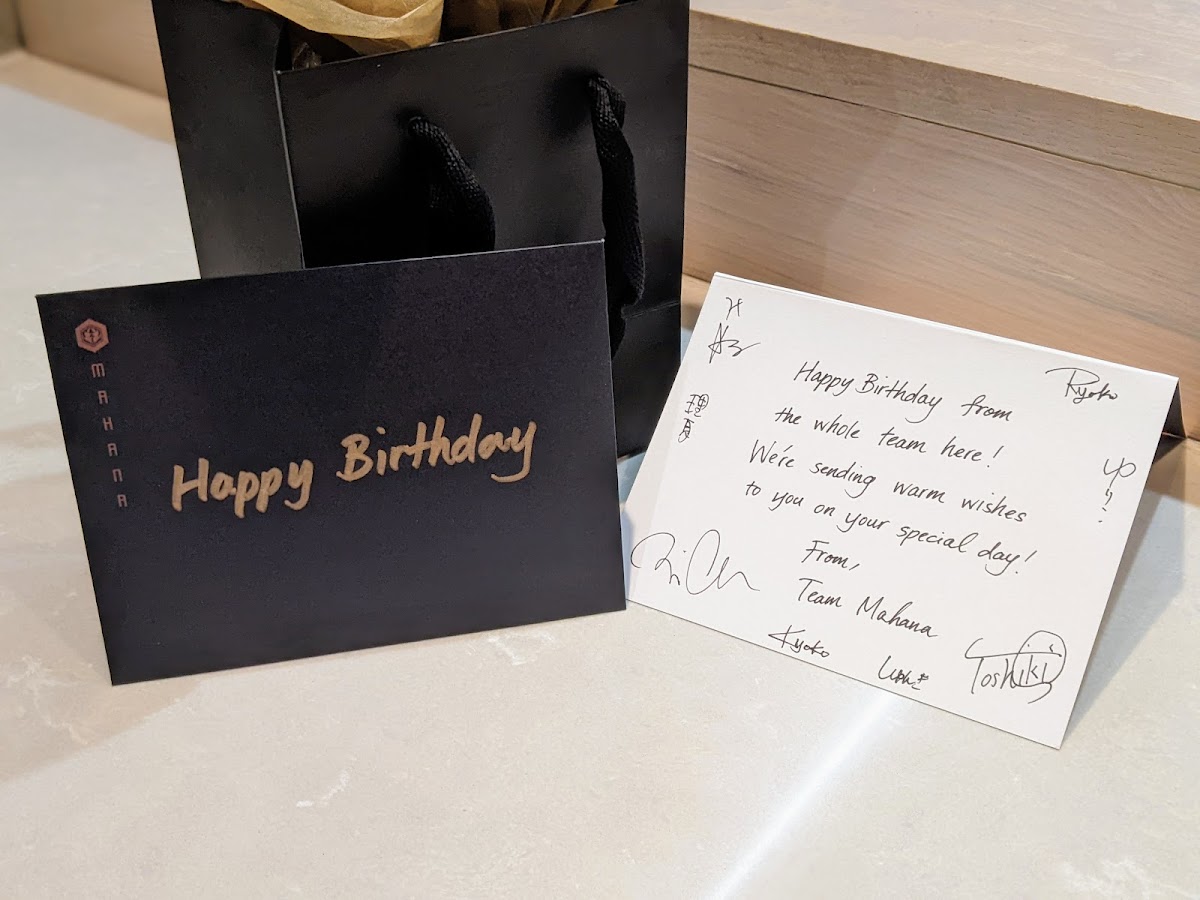 MAHANA
Happy Birthday
Happy Birthday from
the whole team here!
We're sending warm wishes
to you on your special day!
From,
Team Mahana
Ryoko
Kyoko
Toshiki